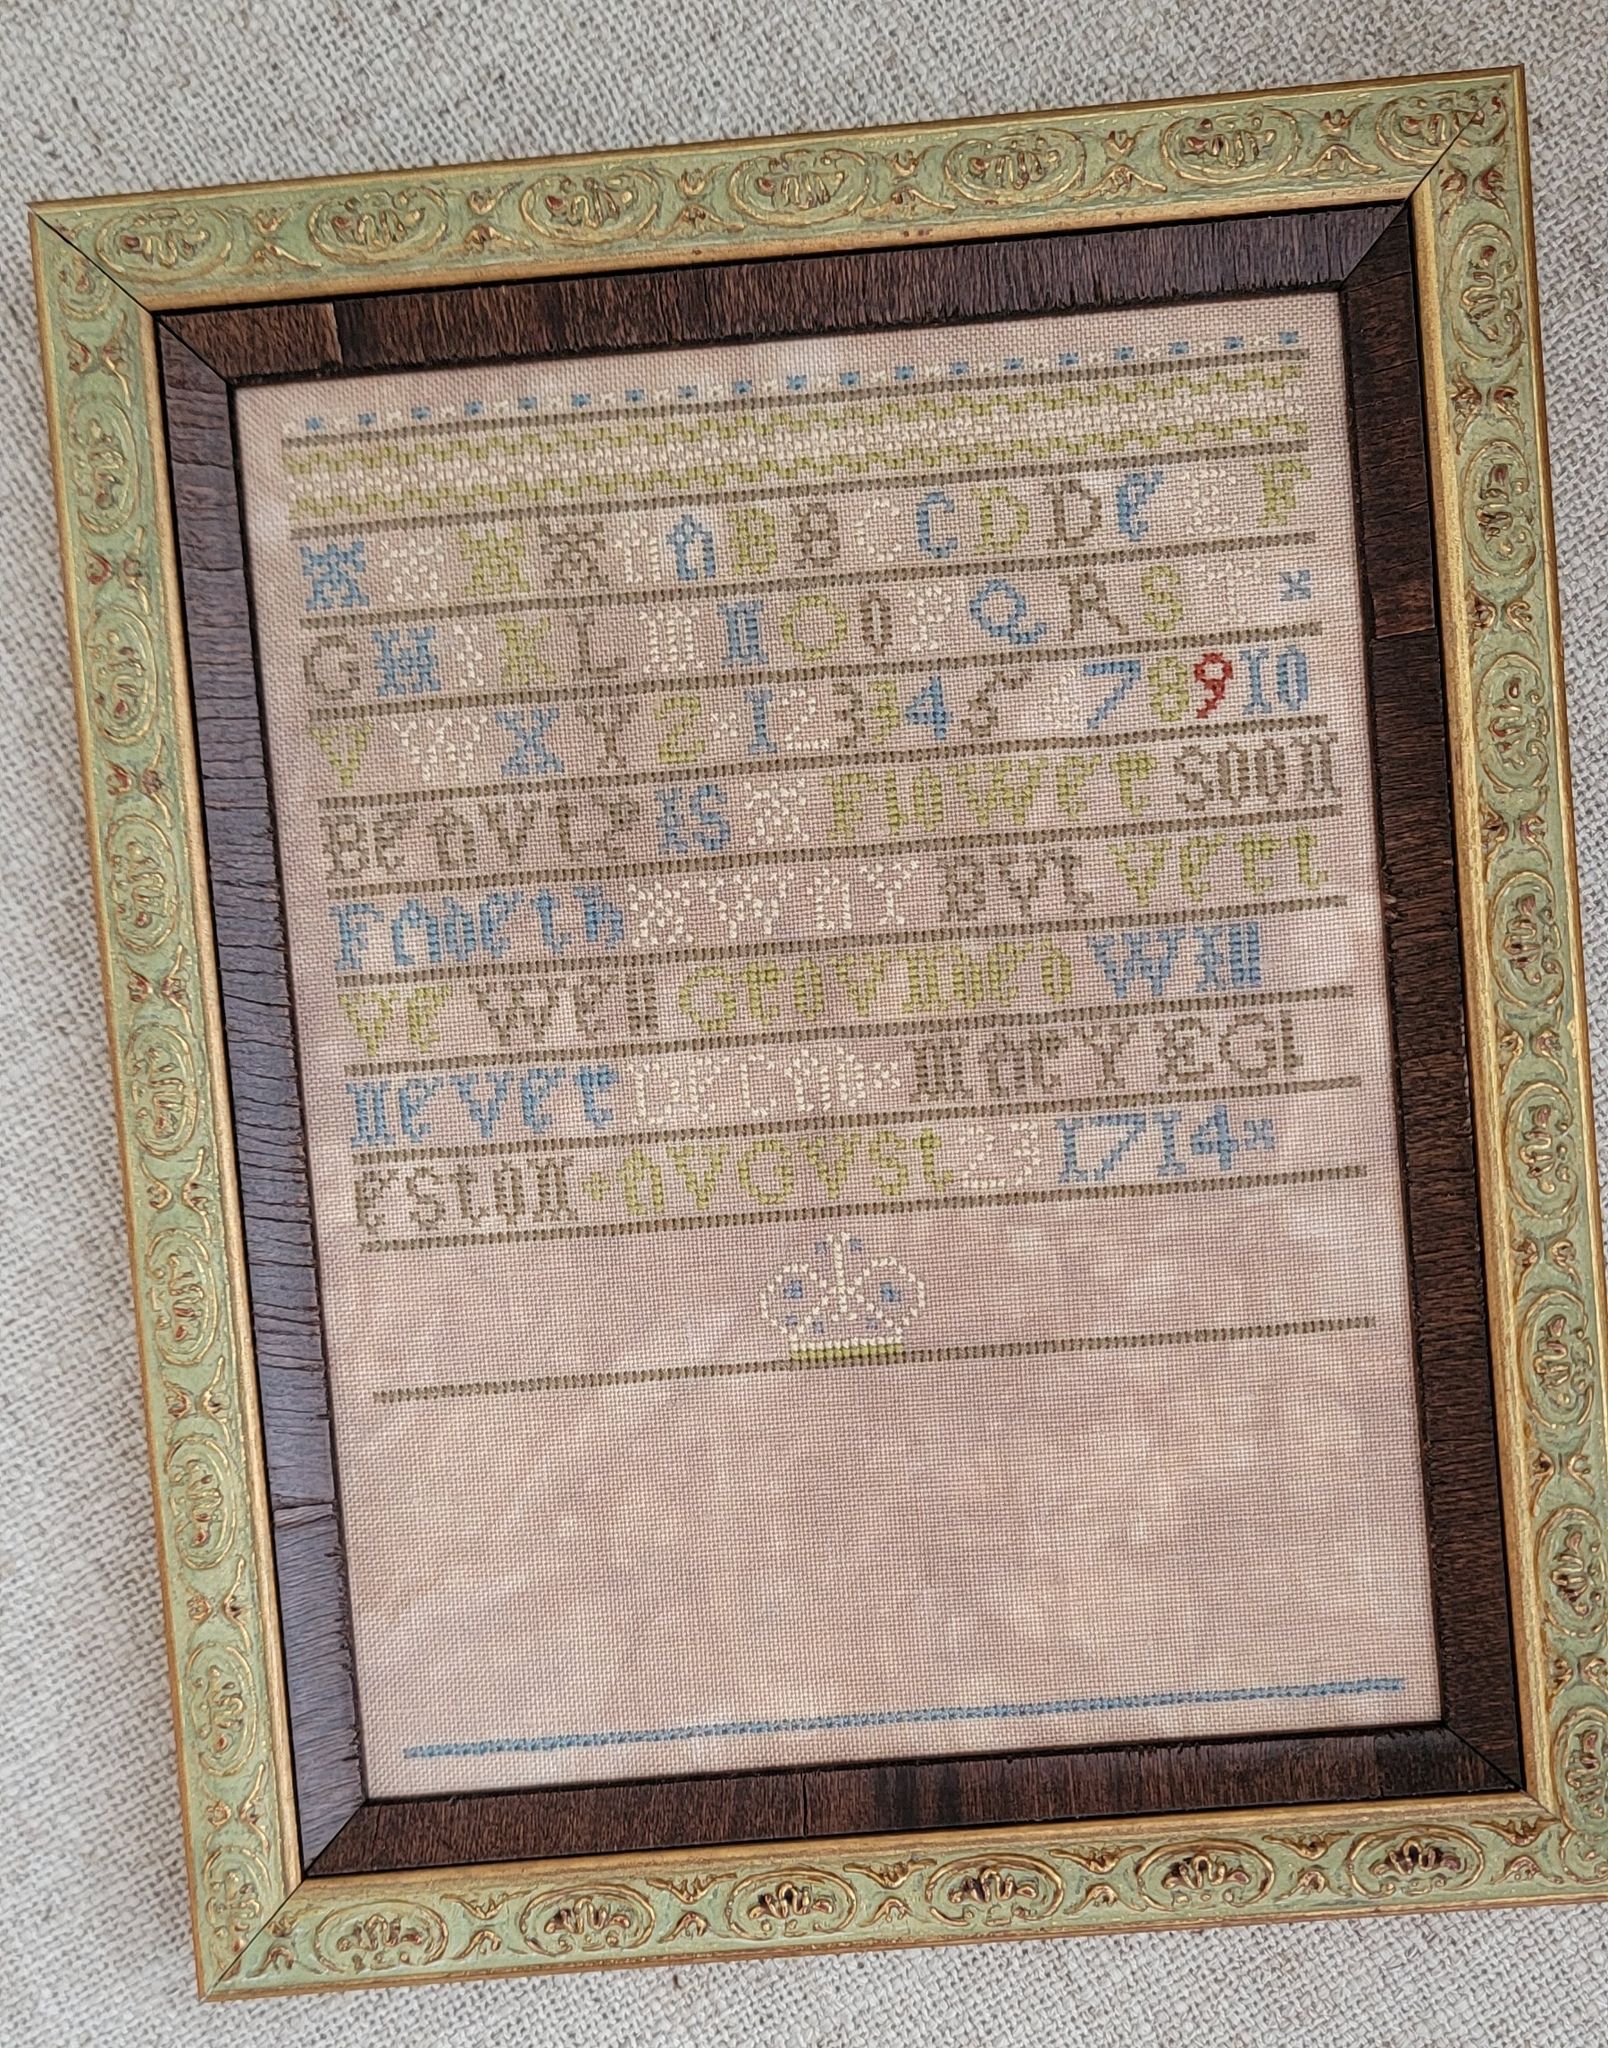 A A A A A A B B C C D D e E F
G H I K L M N O O P Q R S T x
V W X Y Z x 1 2 3 3 4 5 6 7 8 9 10
BeAVte IS A FloWer SOON
FADeth AWAY BVt Vert
Ve Well GroVNDeD WIll
NeVer DeCAD x MArY EGl
eStON + AVGVSt 23 1714 x